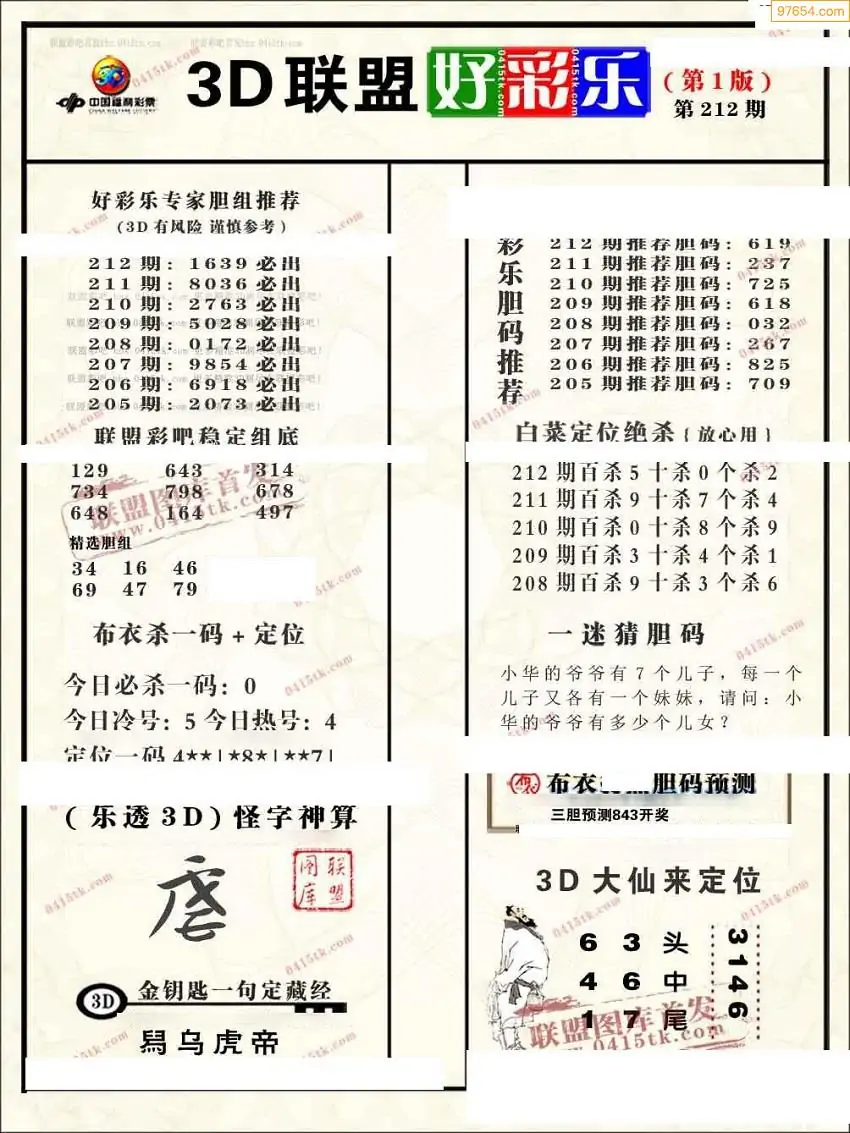 97654.com
3D联盟好彩乐
(第1版)
第212期
中国福利彩票
CHINA WELFARE LOTTERY
好彩乐专家胆组推荐
(3D有风险 谨慎参考)
212期: 1639必出
211期: 8036必出
210期: 2763必出
209期: 5028必出
208期: 0172必出
207期: 9854必出
206期: 6918必出
205期: 2073必出
联盟彩吧稳定组底
129 643 314
734 798 678
648 164 497
精选胆组
34 16 46
69 47 79
布衣杀一码+定位
今日必杀一码: 0
今日冷号: 5 今日热号: 4
定位一码 4★★|★8★|★★7|
(乐透3D)怪字神算
联盟图库
3D 金钥匙一句定藏经
舄乌虎帝
彩乐胆码推荐
212期推荐胆码: 619
211期推荐胆码: 237
210期推荐胆码: 725
209期推荐胆码: 618
208期推荐胆码: 032
207期推荐胆码: 267
206期推荐胆码: 825
205期推荐胆码: 709
白菜定位绝杀{放心用}
212期百杀5十杀0个杀2
211期百杀9十杀7个杀4
210期百杀0十杀8个杀9
209期百杀3十杀4个杀1
208期百杀9十杀3个杀6
一迷猜胆码
小华的爷爷有7个儿子,每一个
儿子又各有一个妹妹,请问:小
华的爷爷有多少个儿女?
布衣 胆码预测
三胆预测843开奖
3D大仙来定位
6 3 头
4 6 中
1 7 尾
3146
联盟图库首发
www.0415tk.com
0415tk.com